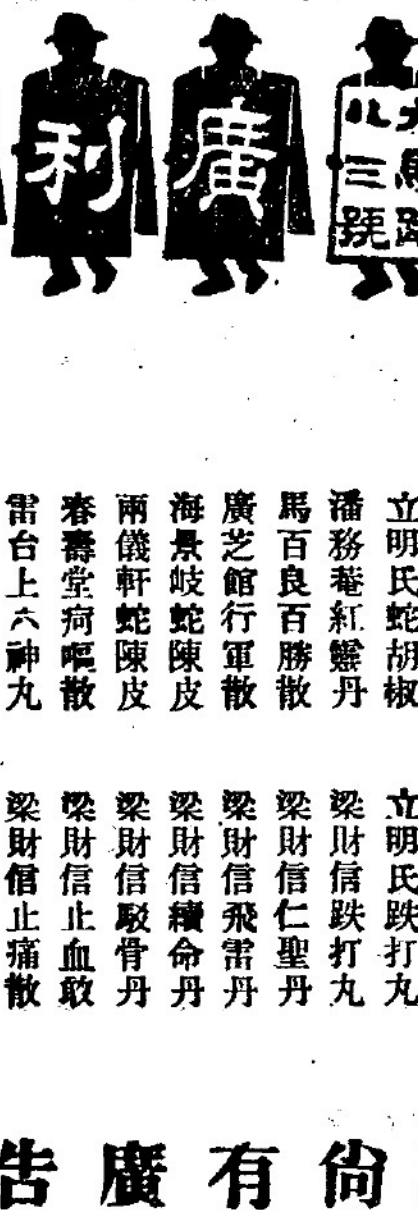 三號
廣利
立明氏蛇胡椒
潘務菴紅靈丹
馬百良百勝散
廣芝館行軍散
海景岐蛇陳皮
兩儀軒蛇陳皮
春壽堂疴嘔散
雷台上六神丸
立明氏跌打丸
梁財信跌打丸
梁財信仁聖丹
梁財信飛雷丹
梁財信續命丹
梁財信駁骨丹
梁財信止血敢
梁財信止痛散
尙有廣告